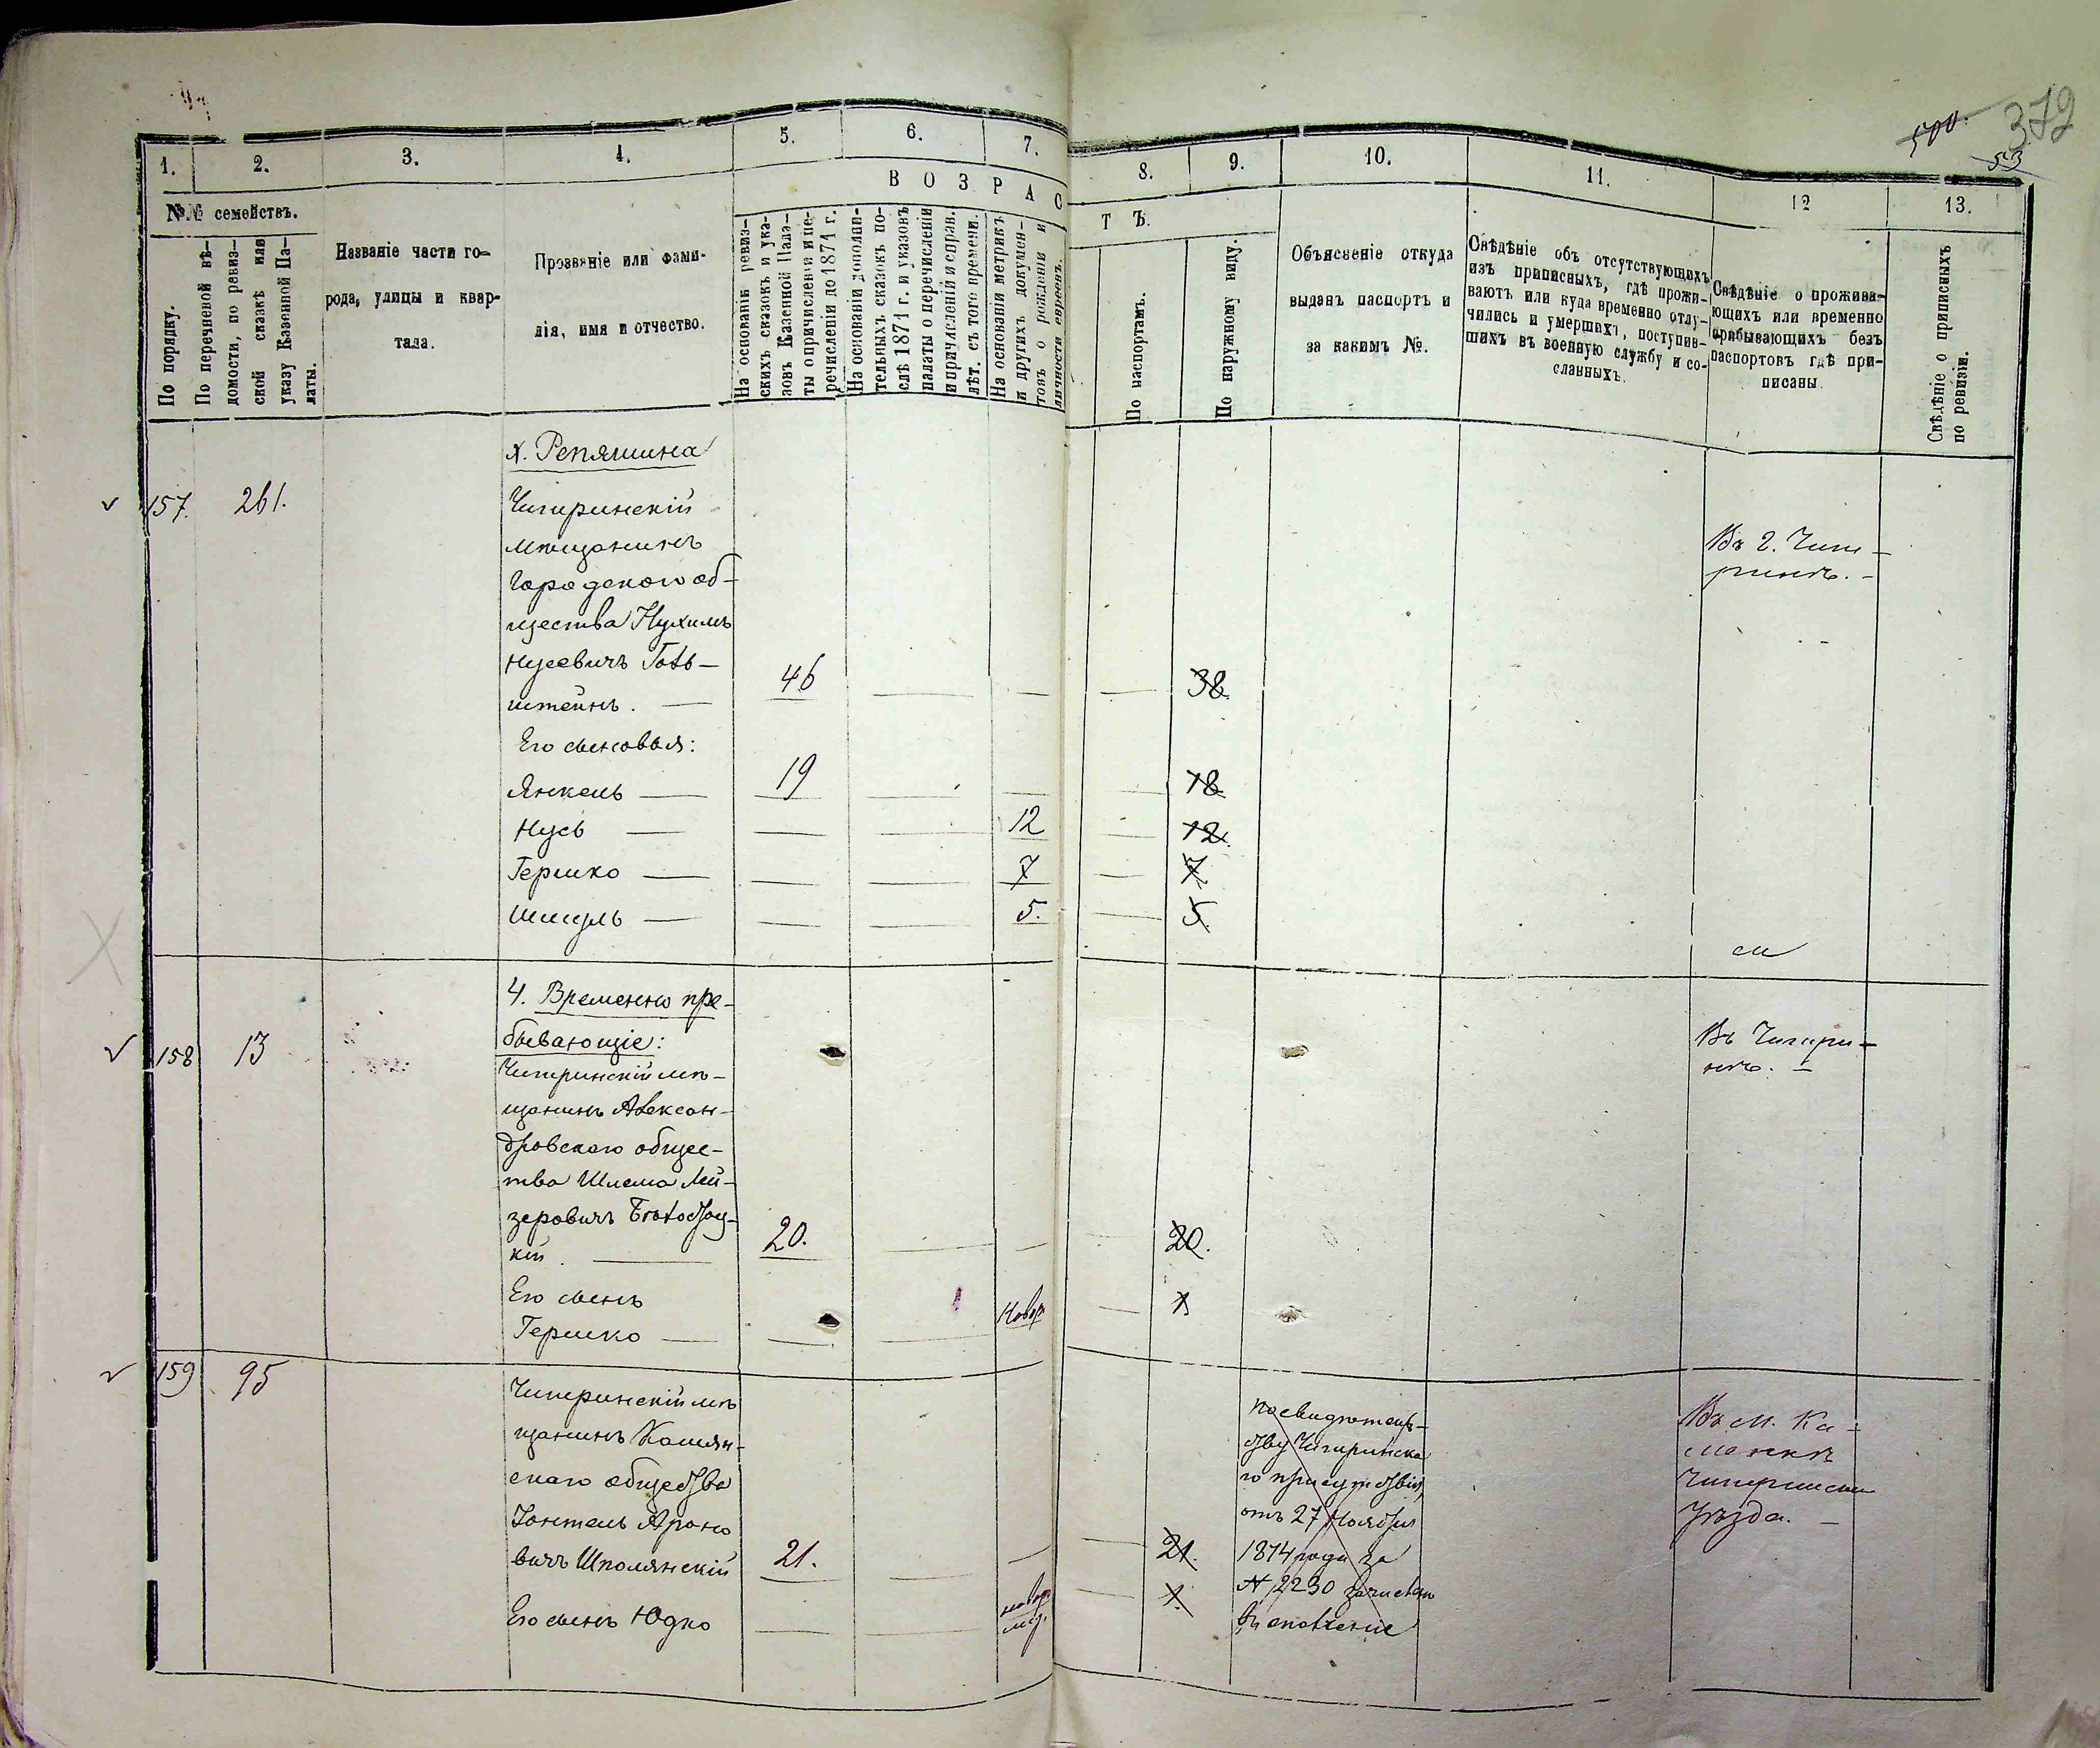 372
500.
53
1.
2.
3.
4.
5.
6.
7.
8.
9.
10.
11.
12
13.
ВОЗРАС
ТЪ.
№№ семействъ.
По порядку.
По перечневой вѣ-
домости, по ревиз-
ской сказкѣ или
указу Казенной Па-
латы.
Названіе части го-
рода, улицы и квар-
тала.
Прозваніе или фами-
лія, имя и отчество.
На основаніи ревиз-
скихъ сказокъ и ука-
зовъ Казенной Пала-
ты о причисленіи и пе-
речисленіи до 1871 г.
На основаніи дополни-
тельныхъ сказокъ по-
слѣ 1871 г. и указовъ
палаты о перечисленіи
и причисленіи и справ.
лѣт. съ того времени.
На основаніи метрикъ
и другихъ докумен-
товъ о рожденіи и
личности евреевъ.
По паспортамъ.
По наружному виду.
Объясненіе откуда
выданъ паспортъ и
за какимъ №.
Свѣдѣніе объ отсутствующихъ
изъ приписныхъ, гдѣ прожи-
ваютъ или куда временно отлу-
чились и умершихъ, поступив-
шихъ въ военную службу и со-
сланныхъ.
Свѣдѣніе о прожива-
ющихъ или временно
прибывающихъ безъ
паспортовъ гдѣ при-
писаны.
Свѣдѣніе о приписныхъ
по ревизіи.
х. Репяшина
157. 261.
Чигиринскій
мѣщанинъ
Городского об-
щества Нухимъ
Нусевичъ Голь-
штейнъ. 46 38.
Въ г. Чиги-
ринѣ.
Его сыновья:
Янкель 19 18
Нусь 12 12.
Гершко 7 7
Шмуль 5. 5.
4. Временно пре-
бывающіе:
158 13
Чигиринскій мѣ-
щанинъ Алексан-
дровскаго общес-
тва Шлема Лей-
зеровичъ
кій. 20. 20.
Въ Чигири-
нѣ.
Его сынъ
Гершко Новор 1
159 95
Чигиринскій мѣ
щанинъ Камян-
скаго общества
Іонтель Ароно
вичъ Шполянскій 21. 21.
Его сынъ Юдко 1.
По свидѣтель-
ству Чигиринска
го присутствія
отъ 27 Ноября
1874 года за
№ 2230 зачисленъ
въ ополченіе
Въ м. Ка-
манкѣ
Чигиринска
уѣзда.